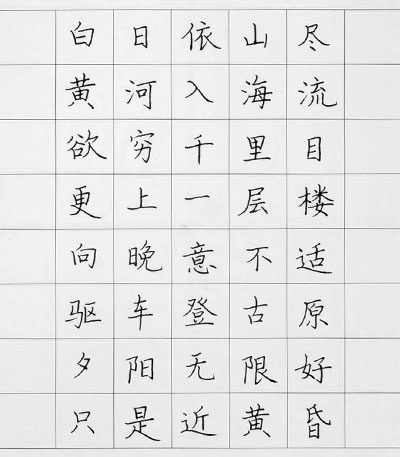 白日依山尽
黄河入海流
欲穷千里目
更上一层楼
向晚意不适
驱车登古原
夕阳无限好
只是近黄昏